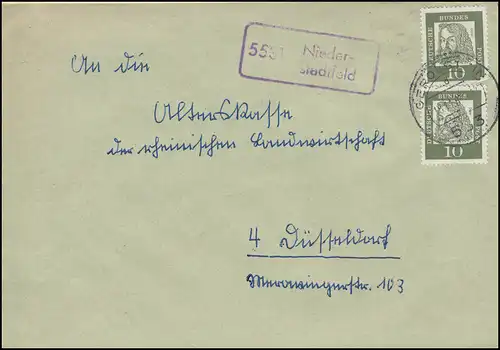 5531 Nieder-
stadtfeld
DEUTSCHE BUNDES POST
10
DEUTSCHE BUNDES POST
10
GEROLSTEIN
An die
Alterskasse
der rheinischen Landwirtschaft
4 Düsseldorf
Merowingerstr. 103